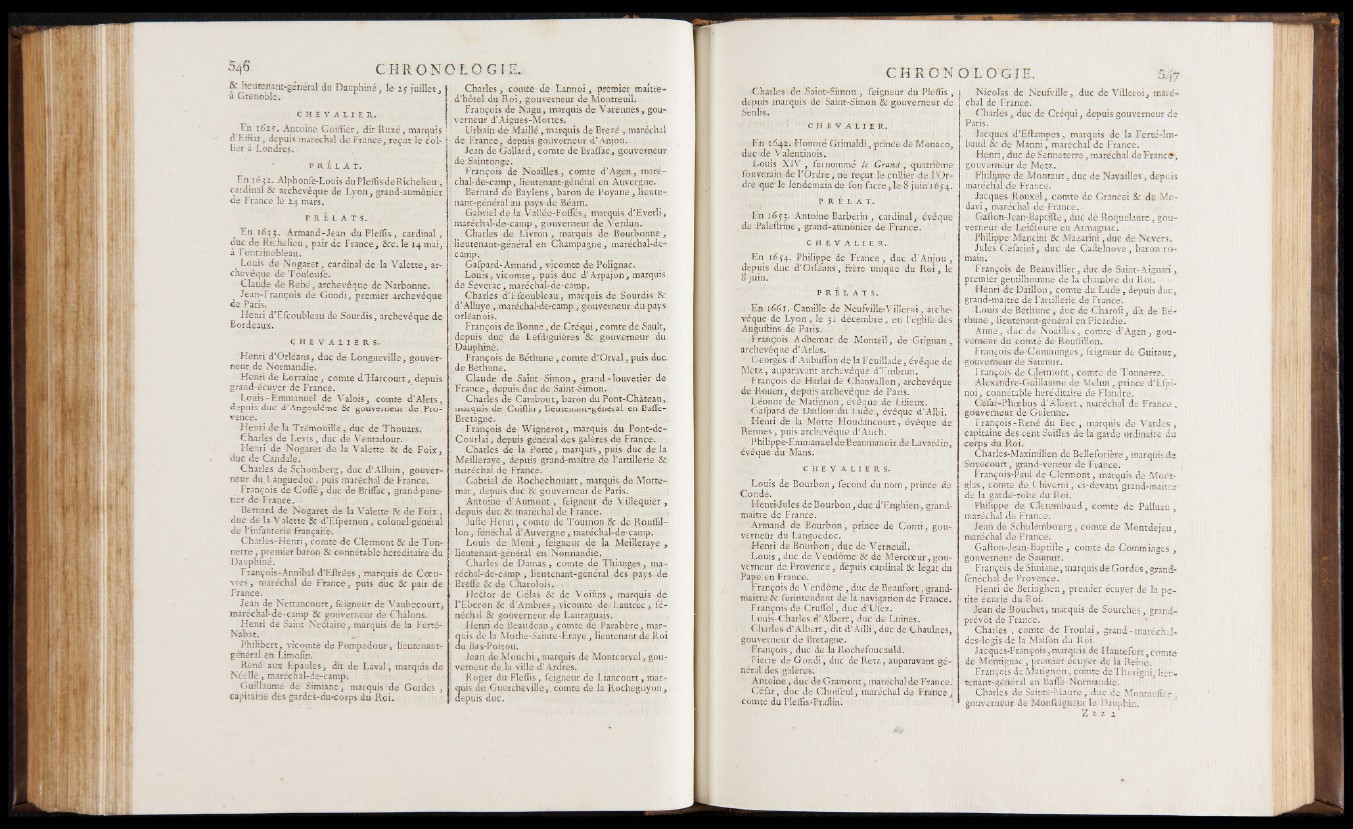 546 CHRONOLOGIE.
& lieutenant-général du Dauphiné, le 25 juillet,
à Grenoble.
CHEVALIER.
En 1625. Antoine Coiffier, dit Ruzé, marquis
d'Effiat, depuis maréchal de France, reçut le col-
lier à Londres.
PRÉLAT.
En 1632. Alphonse-Louis du Plessis de Richelieu,
cardinal & archevêque de Lyon, grand-aumônier
de France le 24 mars.
PRÉLATS.
En 1633. Armand-Jean du Plessis, cardinal,
duc de Richelieu, pair de France, &c. le 14 mai,
à Fontainebleau.
Louis de Nogaret, cardinal de la Valette, ar-
chevêque de Toulouse.
Claude de Rebé, archevêque de Narbonne.
Jean-François de Gondi, premier archevêque
de Paris.
Henri d'Escoubleau de Sourdis, archevêque de
Bordeaux.
CHEVALIERS.
Henri d'Orléans, duc de Longueville, gouver-
neur de Normandie.
Henri de Lorraine, comte d'Harcourt, depuis
grand-écuyer de France.
Louis-Emmanuel de Valois, comte d'Alets,
depuis duc d'Angoulême & gouverneur de Pro-
vence.
Henri de la Trémouille, duc de Thouars.
Charles de Levis, duc de Ventadour.
Henri de Nogaret de la Valette & de Foix,
duc de Candale.
Charles de Schomberg, duc d'Alluin, gouver-
neur du Languedoc, puis maréchal de France.
François de Cossé, duc de Brissac, grand-pane-
tier de France.
Bernard de Nogaret de la Valette & de Foix,
duc de la Valette & d'Espernon, colonel-général
de l'infanterie française.
Charles-Henri, comte de Clermont & de Ton-
nerre, premier baron & connétable héréditaire du
Dauphiné.
François-Annibal d'Estrées, marquis de Cœu-
vres, maréchal de France, puis duc & pair de
France.
Jean de Nettancourt, seigneur de Vaubecourt,
maréchal-de-camp & gouverneur de Châlons.
Henri de Saint Nectaire, marquis de la Ferté-
Nabat.
Philibert, vicomte de Pompadour, lieutenant-
général en Limosin.
René aux Epaules, dit de Laval, marquis de
Néelle, maréchal-de-camp.
Guillaume de Simiane, marquis de Gordes,
capitaine des gardes-du-corps du Roi.
Charles, comte de Lannoi, premier maître-
d'hôtel du Roi, gouverneur de Montreuil.
François de Nagu, marquis de Varennes, gou-
verneur d'Aigues-Mortes.
Urbain de Maillé, marquis de Brezé, maréchal
de France, depuis gouverneur d'Anjou.
Jean de Gallard, comte de Brassac, gouverneur
de Saintonge.
François de Noailles, comte d'Agen, maré-
chal-de-camp, lieutenant-général en Auvergne.
Bernard de Baylens, baron de Poyane, lieute-
nant-général au pays de Béarn.
Gabriel de la Vallée-Fossés, marquis d'Everli,
maréchal-de-camp, gouverneur de Verdun.
Charles de Livron, marquis de Bourbonne,
lieutenant-général en Champagne, maréchal-de-
camp.
Gaspard-Armand, vicomte de Polignac.
Louis, vicomte, puis duc d'Arpajon, marquis
de Severac, maréchal-de-camp.
Charles d'Escoubleau, marquis de Sourdis &
d'Alluye, maréchal-de-camp, gouverneur du pays
orléanois.
François de Bonne, de Créqui, comte de Sault,
depuis duc de Lesdiguières & gouverneur du
Dauphiné.
François de Béthune, comte d'Orval, puis duc
de Béthune.
Claude de Saint-Simon, grand-louvetier de
France, depuis duc de Saint-Simon.
Charles de Cambout, baron du Pont-Château,
marquis de Coislin, lieutenant-général en Basse-
Bretagne.
François de Wignerot, marquis du Pont-de-
Courlai, depuis général des galères de France.
Charles de la Porte, marquis, puis duc de la
Meilleraye, depuis grand-maître de l'artillerie &
maréchal de France.
Gabriel de Rochechouart, marquis de Morte-
mar, depuis duc & gouverneur de Paris.
Antoine d'Aumont, seigneur de Villequier,
depuis duc & maréchal de France.
Juste-Henri, comte de Tournon & de Roussil-
lon, sénéchal d'Auvergne, maréchal-de-camp.
Louis de Moui, seigneur de la Meilleraye,
lieutenant-général en Normandie.
Charles de Damas, comte de Thianges, ma-
réchal-de-camp, lieutenant-général des pays de
Bresse & de Charolois.
Hector de Gélas & de Voisins, marquis de
l'Eberon & d'Ambres, vicomte de Lautrec, sé-
néchal & gouverneur de Lauraguais.
Henri de Beaudean, comte de Parabère, mar-
quis de la Mothe-Sainte-Eraye, lieutenant de Roi
du Bas-Poitou.
Jean de Mouchi, marquis de Montcavrel, gou-
verneur de la ville d'Ardres.
Roger du Plessis, seigneur de Liancourt, mar-
quis de Guercheville, comte de la Rocheguyon,
depuis duc.
CHRONOLOGIE. 547
Charles de Saint-Simon, seigneur du Plessis,
depuis marquis de Saint-Simon & gouverneur de
Senlis.
CHEVALIER.
En 1642. Honoré Grimaldi, prince de Monaco,
duc de Valentinois.
Louis XIV, surnommé le Grand, quatrième
souverain de l'Ordre, ne reçut le collier de l'Or-
dre que le lendemain de son sacre, le 8 juin 1654.
PRÉLAT.
En 1653. Antoine Barberin, cardinal, évêque
de Palestrine, grand-aumonier de France.
CHEVALIER.
En 1654. Philippe de France, duc d'Anjou,
depuis duc d'Orléans, frère unique du Roi, le
8 juin.
PRÉLATS.
En 1661. Camille de Neufville-Villeroi, arche-
vêque de Lyon, le 31 décembre, en l'église des
Augustins de Paris.
François Adhemar de Monteil, de Grignan,
archevêque d'Arles.
Georges d'Aubusson de la Feuillade, évêque de
Metz, auparavant archevêque d'Embrun.
François de Harlai de Chanvallon, archevêque
de Rouen, depuis archevêque de Paris.
Léonor de Matignon, évêque de Lisieux.
Gaspard de Daillon du Lude, évêque d'Albi.
Henri de la Motte Houdancourt, évêque de
Rennes, puis archevêque d'Auch.
Philippe-Emmanuel de Beaumanoir de Lavardin,
évêque du Mans.
CHEVALIERS.
Louis de Bourbon, second du nom, prince de
Condé.
Henri-Jules de Bourbon, duc d'Enghien, grand-
maître de France.
Armand de Bourbon, prince de Conti, gou-
verneur du Languedoc.
Henri de Bourbon, duc de Verneuil.
Louis, duc de Vendôme & de Mercœur, gou-
verneur de Provence, depuis cardinal & legat du
Pape en France.
François de Vendôme, duc de Beaufort, grand-
maître & surintendant de la navigation de France.
François de Crussol, duc d'Usez.
Louis-Charles d'Albert, duc de Luines.
Charles d'Albert, dit d'Ailli, duc de Chaulnes,
gouverneur de Bretagne.
François, duc de la Rochefoucauld.
Pierre de Gondi, duc de Retz, auparavant gé-
néral des galères.
Antoine, duc de Gramont, maréchal de France.
César, duc de Choiseul, maréchal de France,
comte du Plessis-Praslin.
Nicolas de Neufville, duc de Villeroi, maré-
chal de France.
Charles, duc de Créqui, depuis gouverneur de
Paris.
Jacques d'Estampes, marquis de la Ferté-Im-
baud & de Manni, maréchal de France.
Henri, duc de Senneterre, maréchal de France,
gouverneur de Metz.
Philippe de Montaut, duc de Navailles, depuis
maréchal de France.
Jacques Rouxel, comte de Grancei & de Me-
davi, maréchal de France.
Gaston-Jean-Baptiste, duc de Roquelaure, gou-
verneur de Leictoure en Armagnac.
Philippe Mancini & Mazarini, duc de Nevers.
Jules Cesarini, duc de Castelnove, baron ro-
main.
François de Beauvillier, duc de Saint-Aignan,
premier gentilhomme de la chambre du Roi.
Henri de Daillon, comte du Lude, depuis duc,
grand-maître de l'artillerie de France.
Louis de Béthune, duc de Charost, dit de Bé-
thune, lieutenant-général en Picardie.
Anne, duc de Noailles, comte d'Agen, gou-
verneur du comté de Roussillon.
François de Comminges, seigneur de Guitaut,
gouverneur de Saumur.
François de Clermont, comte de Tonnerre.
Alexandre-Guillaume de Melun, prince d'Espi-
noi, connétable héréditaire de Flandre.
César-Phœbus d'Albert, maréchal de France,
gouverneur de Guienne.
François-René du Bec, marquis de Vardes,
capitaine des cent Suisses de la garde ordinaire du
corps du Roi.
Charles-Maximilien de Belleforière, marquis de
Soyecourt, grand-veneur de France.
François-Paul de Clermont, marquis de Mont-
glas, comte de Chiverni, ci-devant grand-maître
de la garde-robe du Roi.
Philippe de Clerembaud, comte de Palluau,
maréchal de France.
Jean de Schulembourg, comte de Montdejeu,
maréchal de France.
Gaston-Jean-Baptiste, comte de Comminges,
gouverneur de Saumur.
François de Simiane, marquis de Gordes, grand-
sénéchal de Provence.
Henri de Beringhen, premier écuyer de la pe-
tite écurie du Roi.
Jean de Bouchet, marquis de Sourches, grand-
prévôt de France.
Charles, comte de Froulai, grand-maréchal-
des-logis de la Maison du Roi.
Jacques-François, marquis de Hautefort, comte
de Montignac, premier écuyer de la Reine.
François de Matignon, comte de Thorigni, lieu-
tenant-général en Basse-Normandie.
Charles de Sainte-Maure, duc de Montausier,
gouverneur de Monseigneur le Dauphin.
Zzz 2